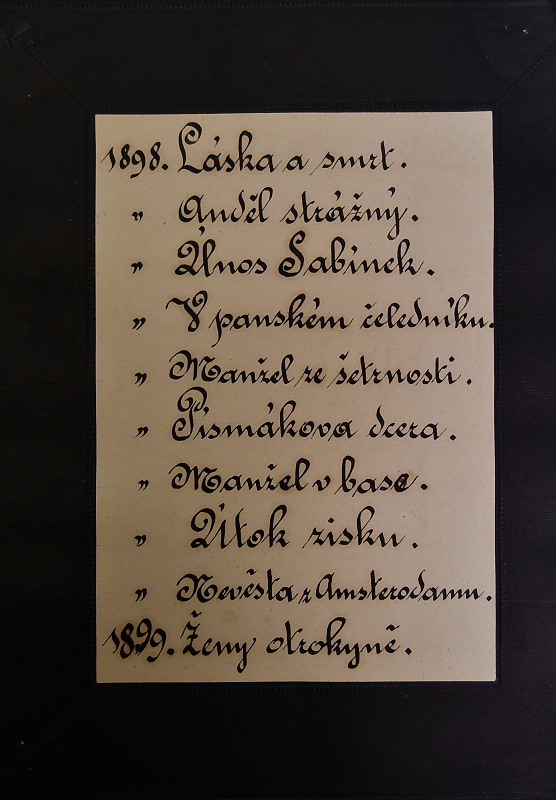 1898. Láska a smrt.
„ Anděl strážný.
„ Únos Sabinek.
„ V panském čeledníku.
„ Manžel ze šetrnosti.
„ Písmákova dcera.
„ Manžel v base.
„ Útok zisku.
„ Nevěsta z Amsterodamu.
1899. Ženy otrokyně.